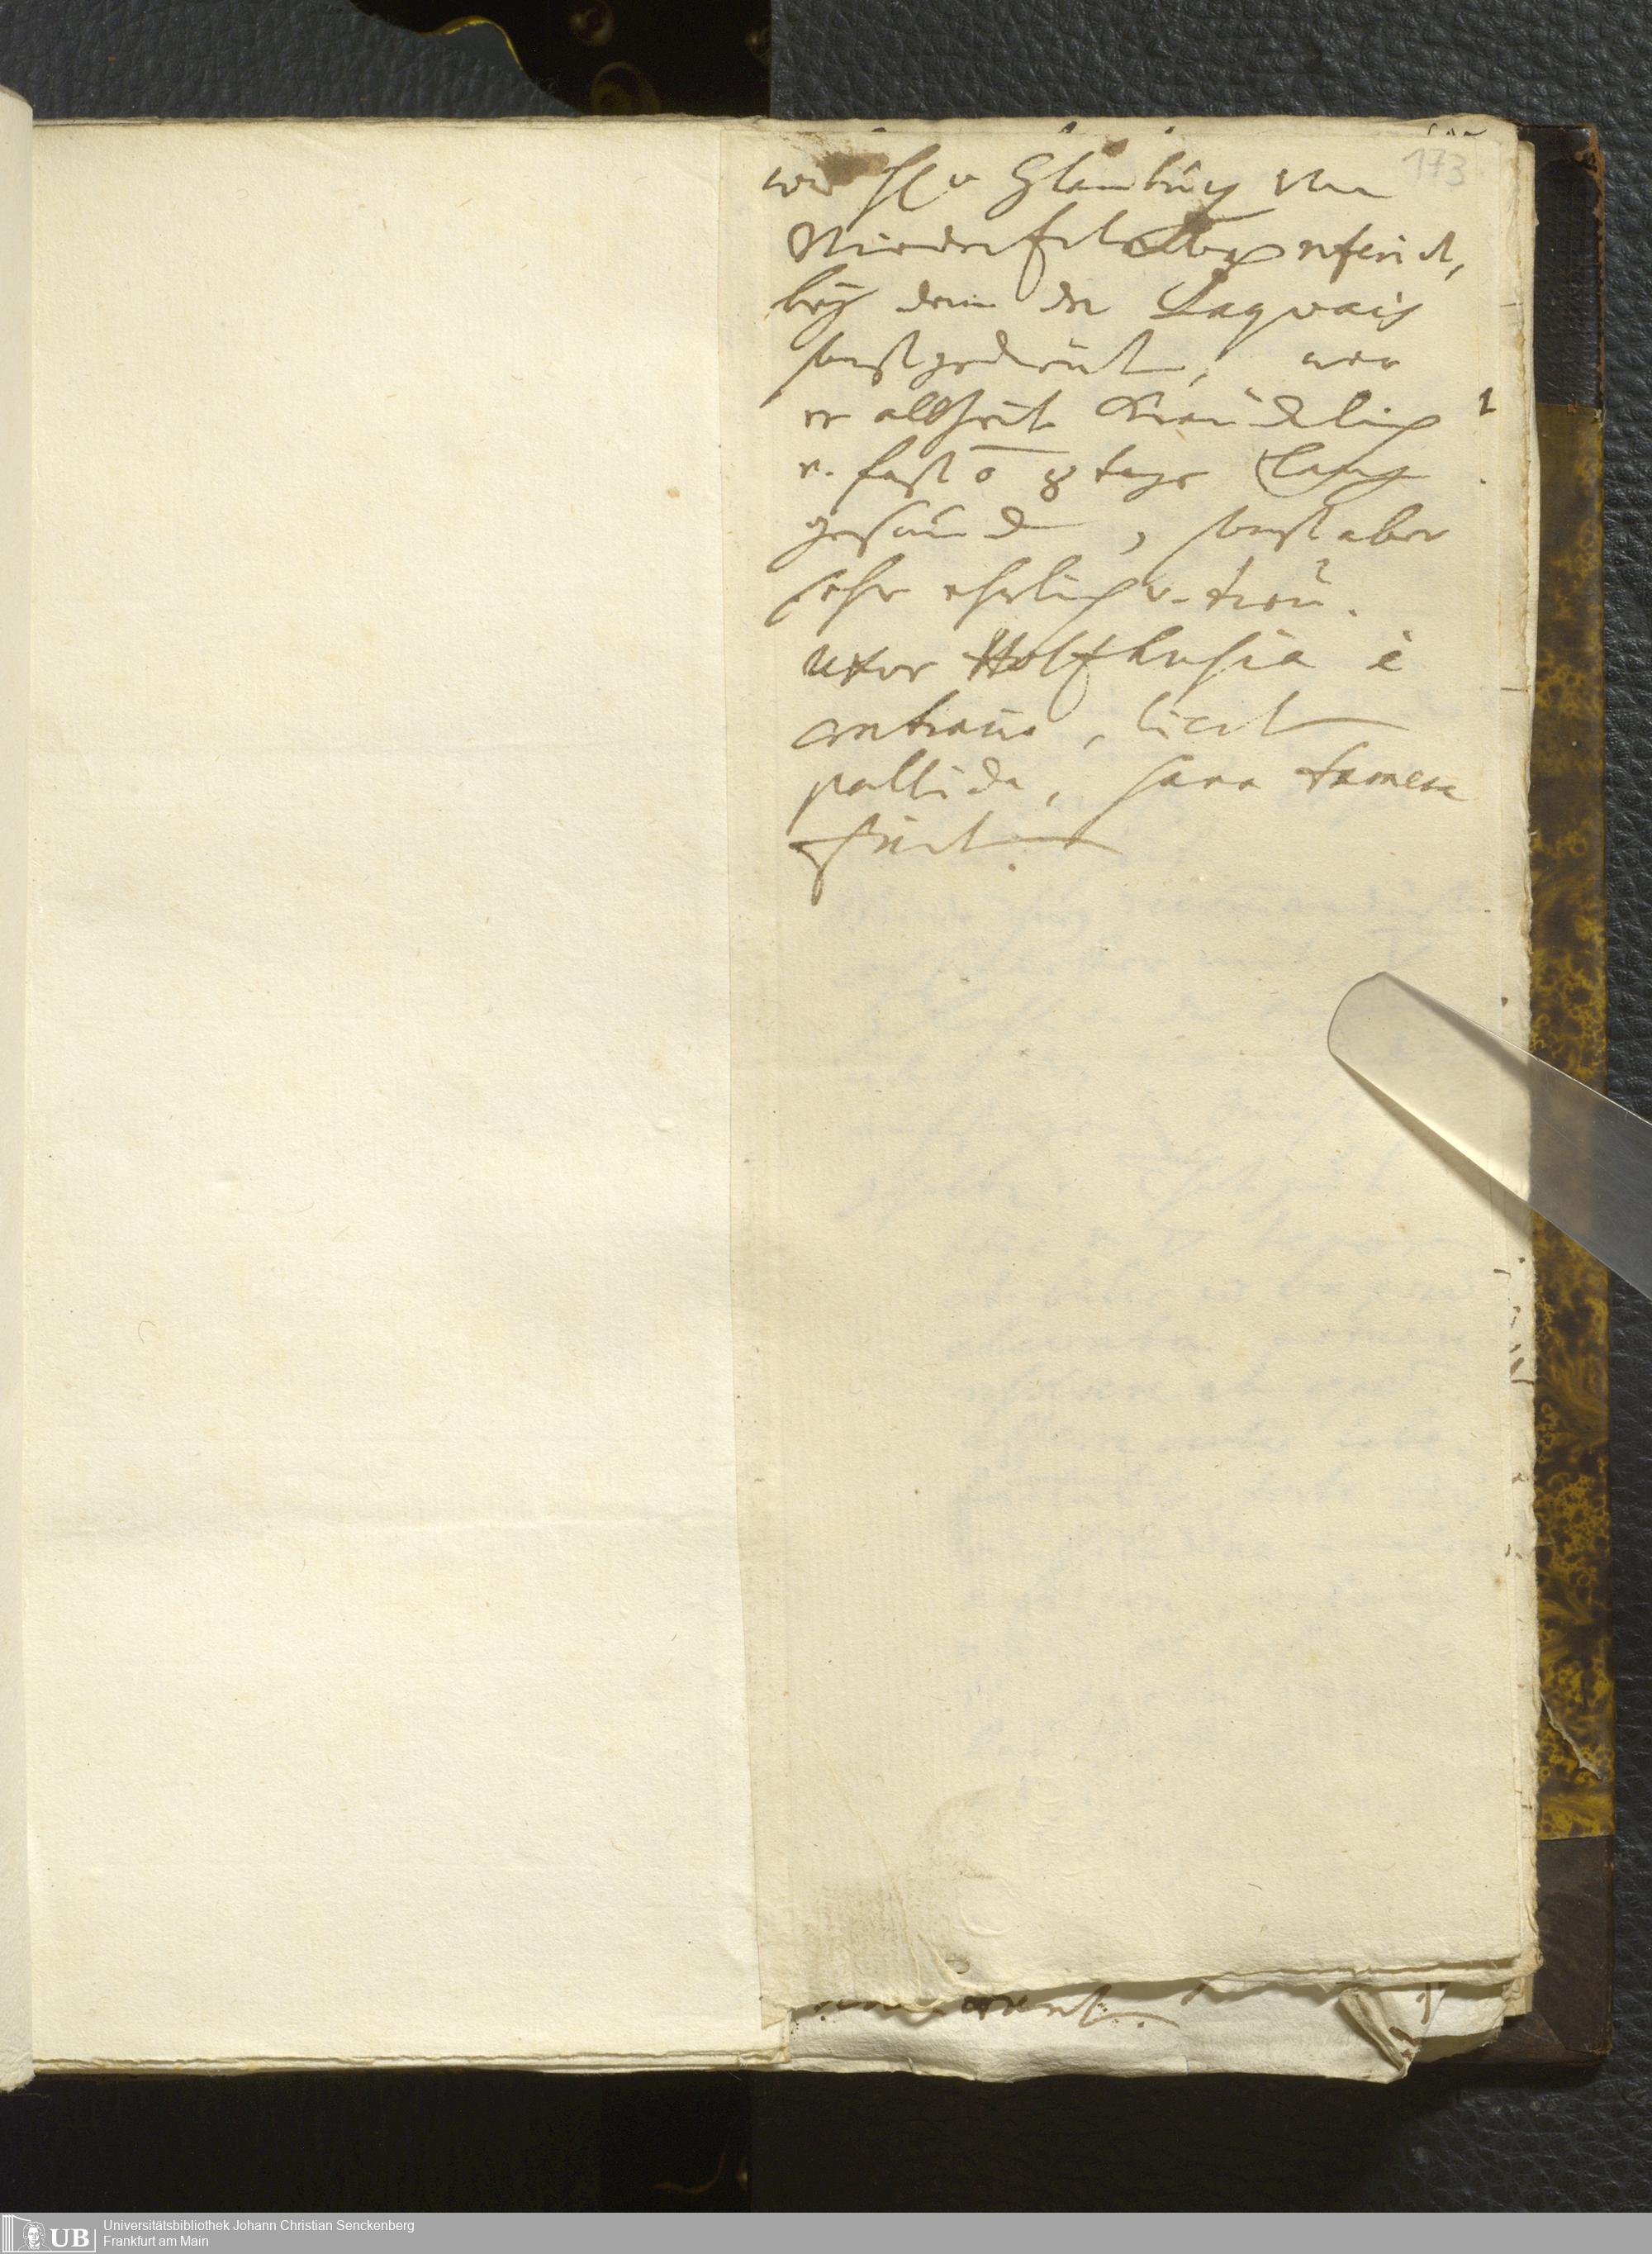 173
wie H v Glauburg von
Niedererlebach referirt,
bey dem der Laqvais
sonst gedient, war
er allzeit kräncklich
u. fast o 8 tage lang
gesund, sonst aber
sehr ehrlich u. treu.
uxor Holthusia è
contrario, licet
pallida, sana tamen
fuit.
UB Universitätsbibliothek Johann Christian Senckenberg
Frankfurt am Main